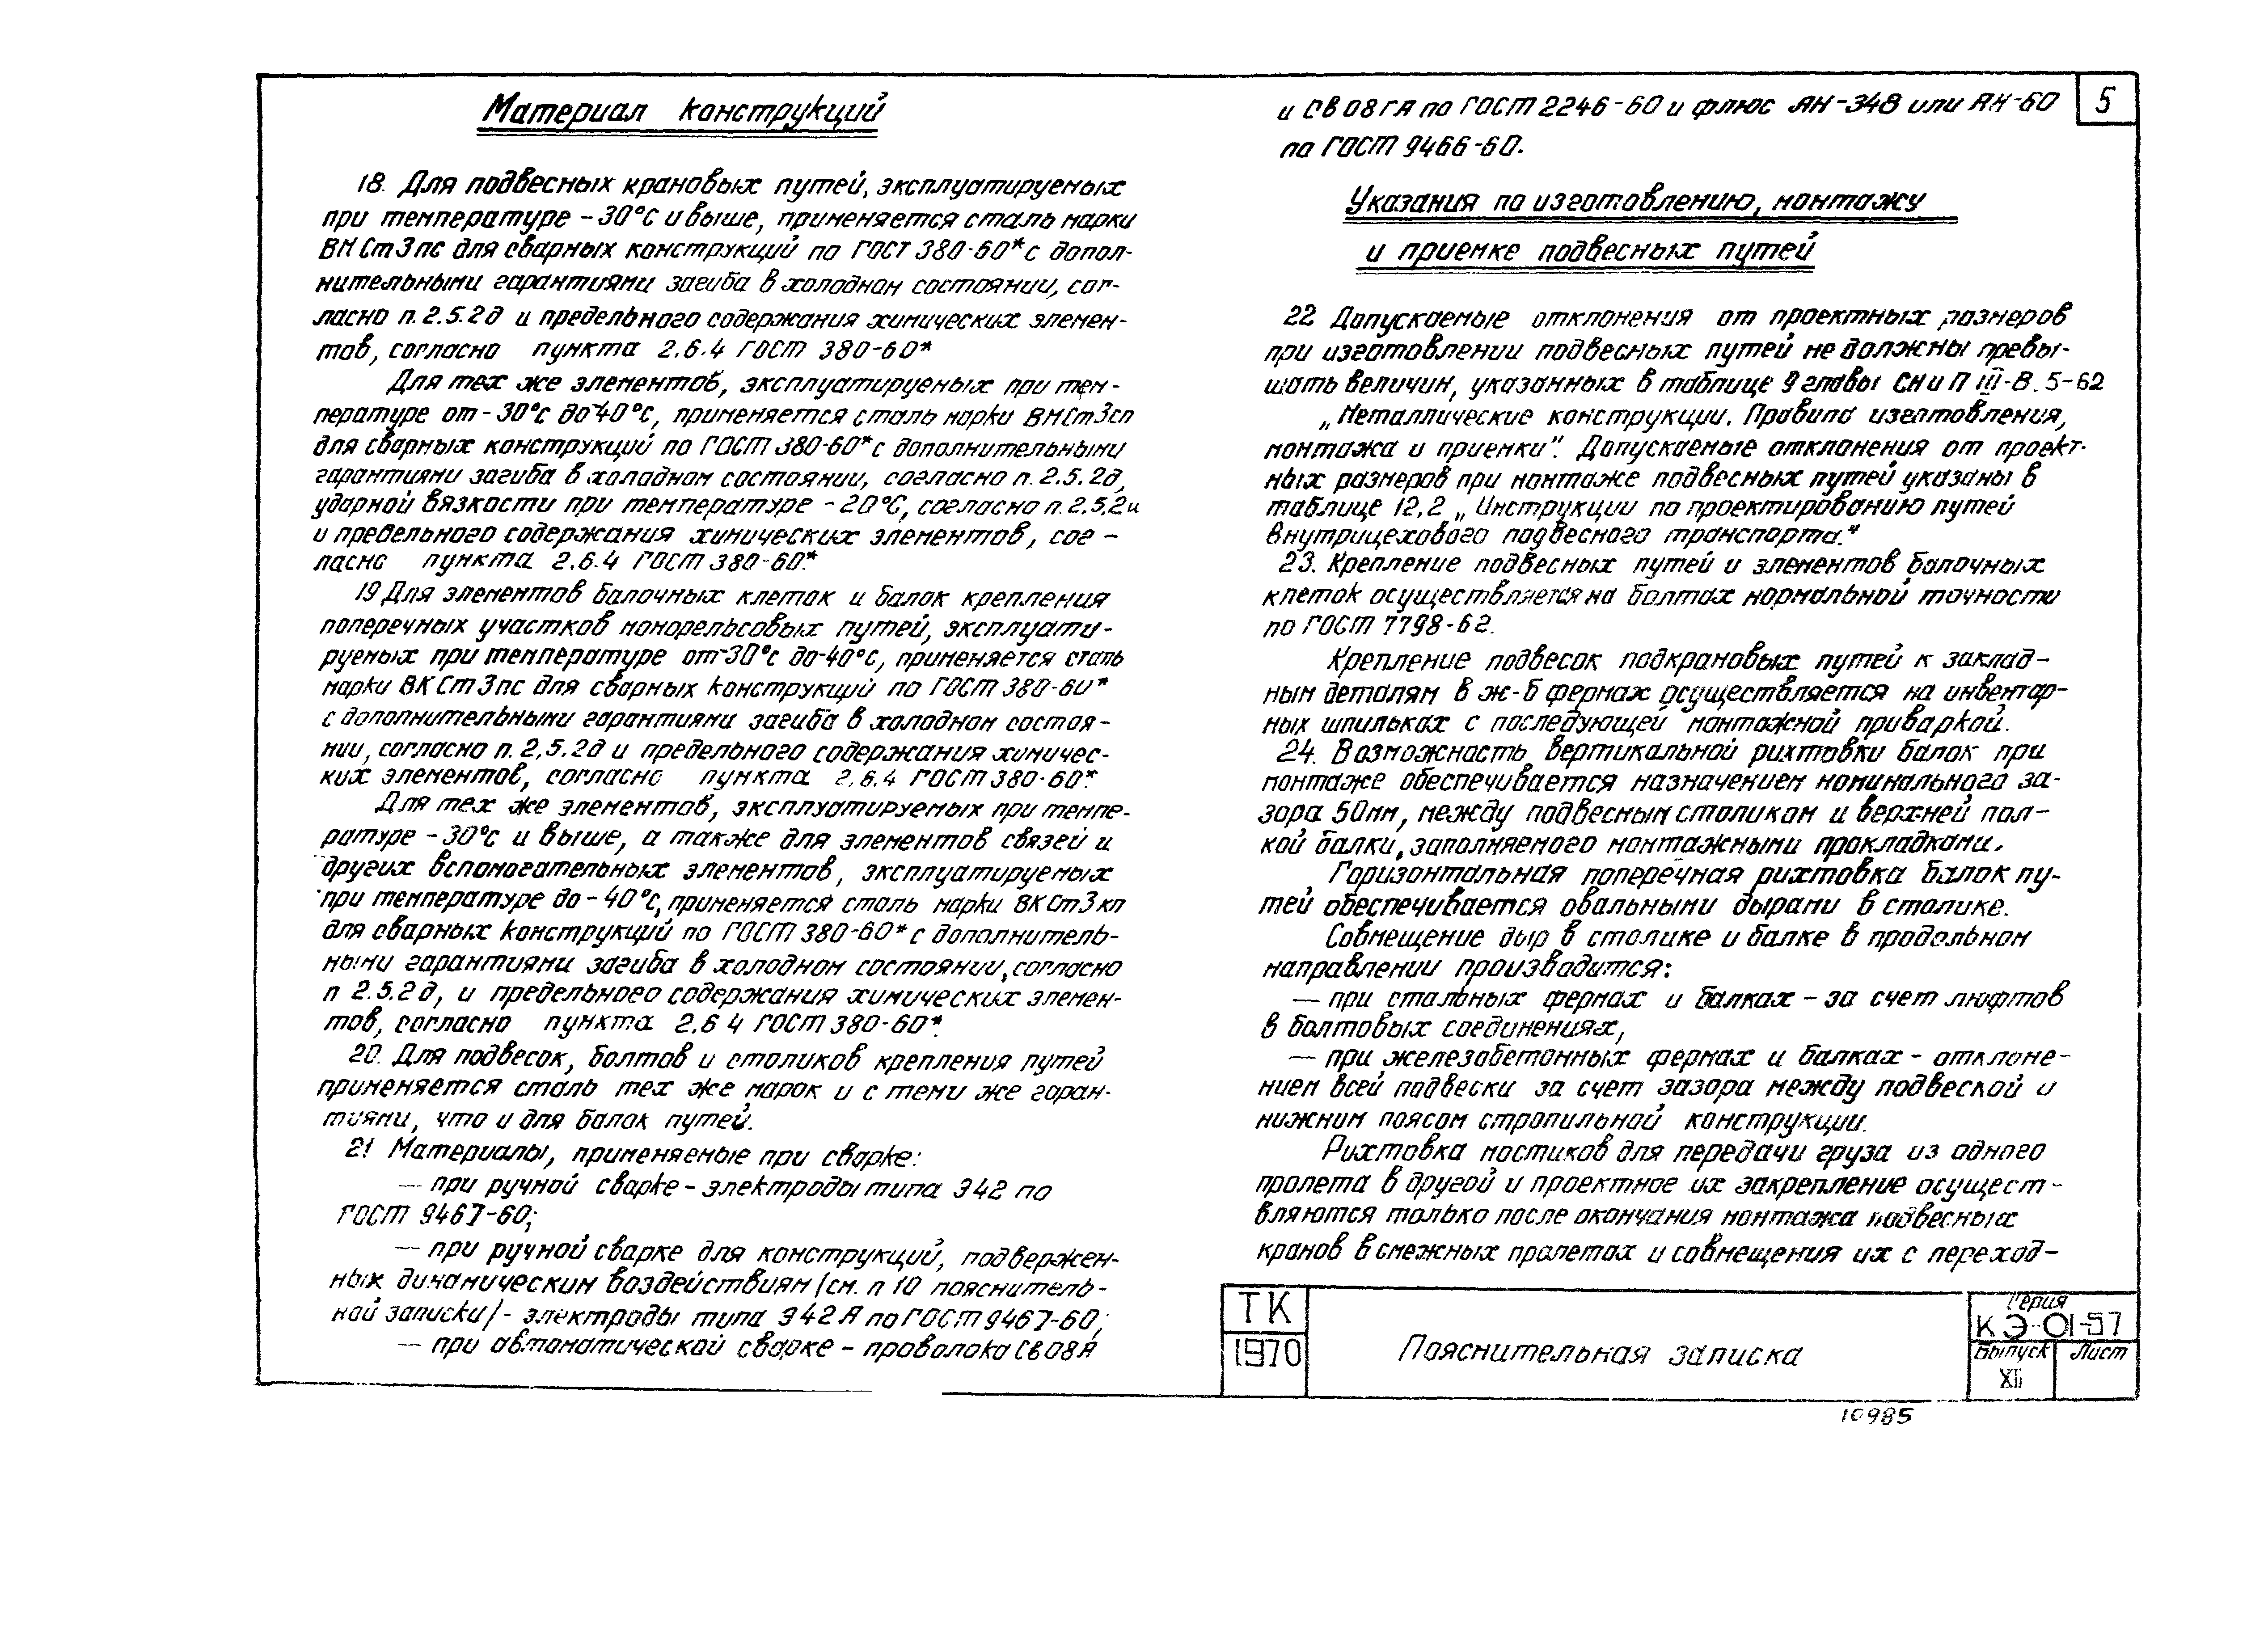 Материал конструкций
18. Для подвесных крановых путей, эксплуатируемых
при температуре -30°С и выше, применяется сталь марки
ВМ Ст 3 пс для сварных конструкций по ГОСТ 380-60* с допол-
нительными гарантиями загиба в холодном состоянии, сог-
ласно п. 2.5.2д и предельного содержания химических элемен-
тов, согласно пункта 2.6.4 ГОСТ 380-60*
Для тех же элементов, эксплуатируемых при тем-
пературе от -30°С до -40°С, применяется сталь марки ВМ Ст 3 сп
для сварных конструкций по ГОСТ 380-60* с дополнительными
гарантиями загиба в холодном состоянии, согласно п. 2.5.2д,
ударной вязкости при температуре -20°С, согласно п. 2.5.2и
и предельного содержания химических элементов, сог-
ласно пункта 2.6.4 ГОСТ 380-60*.
19 Для элементов балочных клеток и балок крепления
поперечных участков монорельсовых путей, эксплуати-
руемых при температуре от -30°С до -40°С, применяется сталь
марки ВК Ст 3 пс для сварных конструкций по ГОСТ 380-60*
с дополнительными гарантиями загиба в холодном состоя-
нии, согласно п. 2.5.2д и предельного содержания химичес-
ких элементов, согласно пункта 2.6.4 ГОСТ 380-60*.
Для тех же элементов, эксплуатируемых при темпе-
ратуре -30°С и выше, а также для элементов связей и
других вспомогательных элементов, эксплуатируемых
при температуре до -40°С, применяется сталь марки ВК Ст 3 кп
для сварных конструкций по ГОСТ 380-60* с дополнитель-
ными гарантиями загиба в холодном состоянии, согласно
п 2.5.2д, и предельного содержания химических элемен-
тов, согласно пункта 2.6 4 ГОСТ 380-60*.
20. Для подвесок, болтов и столиков крепления путей
применяется сталь тех же марок и с теми же гаран-
тиями, что и для балок путей.
21 Материалы, применяемые при сварке:
— при ручной сварке - электроды типа Э42 по
ГОСТ 9467-60;
— при ручной сварке для конструкций, подвержен-
ных динамическим воздействиям /см. п 10 пояснитель-
ной записки/ - электроды типа Э42А по ГОСТ 9467-60;
— при автоматической сварке - проволока Св08А
и Св08ГА по ГОСТ 2246-60 и флюс АН-348 или АН-60
по ГОСТ 9466-60.
5
Указания по изготовлению, монтажу
и приемке подвесных путей
22 Допускаемые отклонения от проектных размеров
при изготовлении подвесных путей не должны превы-
шать величин, указанных в таблице 9 главы СНиП III-В. 5-62
„Металлические конструкции. Правила изготовления,
монтажа и приемки". Допускаемые отклонения от проект-
ных размеров при монтаже подвесных путей указаны в
таблице 12.2 „Инструкции по проектированию путей
внутрицехового подвесного транспорта."
23. Крепление подвесных путей и элементов балочных
клеток осуществляется на болтах нормальной точности
по ГОСТ 7798-62.
Крепление подвесок подкрановых путей к заклад-
ным деталям в ж-б фермах осуществляется на инвентар-
ных шпильках с последующей монтажной приваркой.
24. Возможность вертикальной рихтовки балок при
монтаже обеспечивается назначением номинального за-
зора 50мм, между подвесным столиком и верхней пол-
кой балки, заполняемого монтажными прокладками.
Горизонтальная поперечная рихтовка балок пу-
тей обеспечивается овальными дырами в столике.
Совмещение дыр в столике и балке в продольном
направлении производится:
— при стальных фермах и балках - за счет люфтов
в болтовых соединениях,
— при железобетонных фермах и балках - отклоне-
нием всей подвески за счет зазора между подвеской и
нижним поясом стропильной конструкции.
Рихтовка мостиков для передачи груза из одного
пролета в другой и проектное их закрепление осущест-
вляются только после окончания монтажа подвесных
кранов в смежных пролетах и совмещения их с переход-
ТК
1970
Пояснительная записка
Серия
КЭ-01-57
Выпуск
Лист
XII
10985